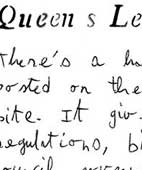 Queen s Le
There's a ha
posted on the
site. It giv
regulations, bi